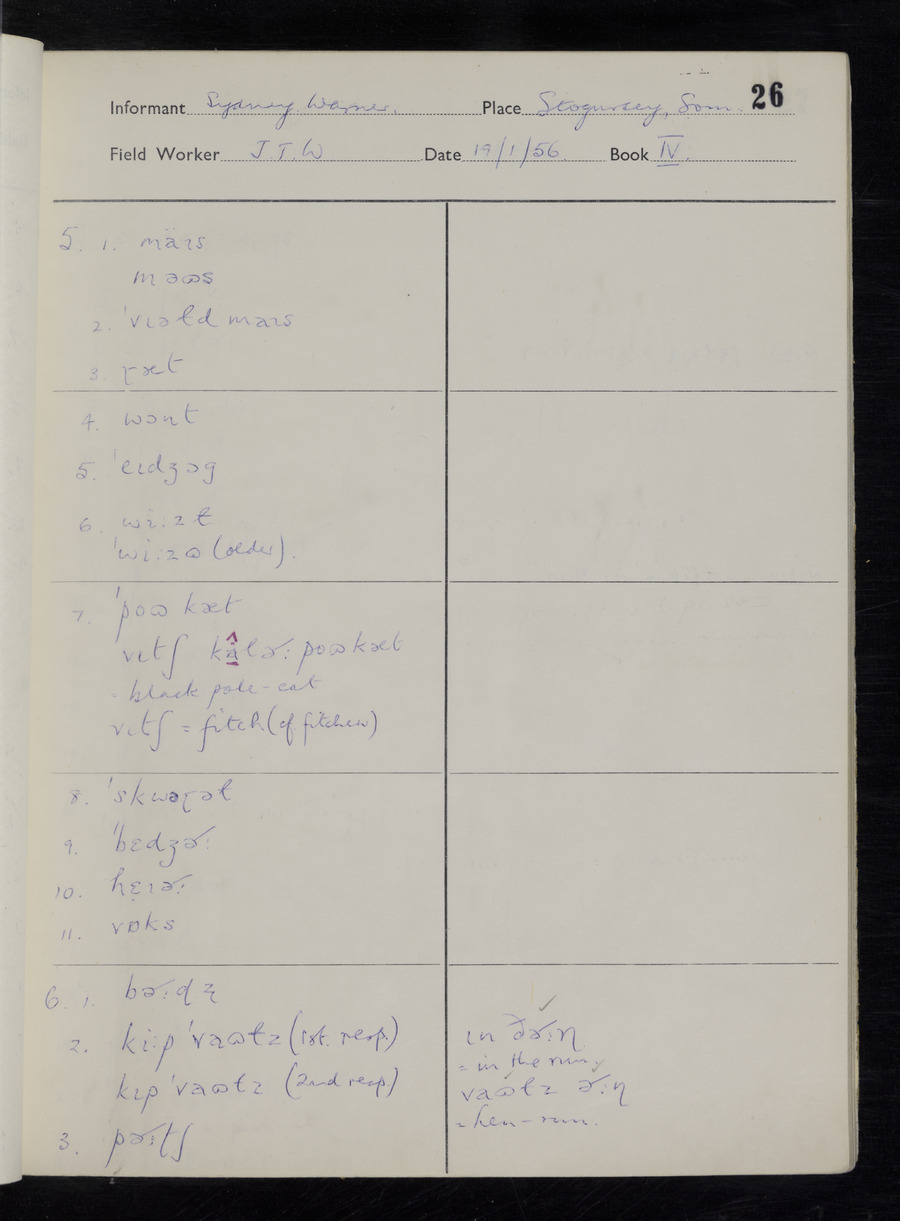 26
Informant Sydney Warner. Place Stogursey, Som.
Field Worker J.T.W Date 19/1/56. Book IV.
5. 1. mäɪs
məɷs
2. 'vɪəɫd maɪs
3. ɽæt
4. wɒnt
5. 'eɪdʒɒg
6. wi:zɫ
'wi:zɷ (older).
7. 'poɷ kæt
vɪtʃ kälɚ: poɷkæt
= black pole-cat
vɪtʃ = fitch (cf fitchew)
8. 'skwəɽəɫ
9. 'bɛdʒɚ:
10. hɛ̣ɪɚ:
11. vɒks
6. 1. bɚ:ɖʐ
2. ki:p 'vaɷɫz (1st. resp.)
kɪp 'vaɷɫz (2nd resp)
3. pɚ:ʈʃ
ɪn ðɚ:ɳ ✓
= in the run,
vaɷɫz ɚ:ɳ
= hen-run.